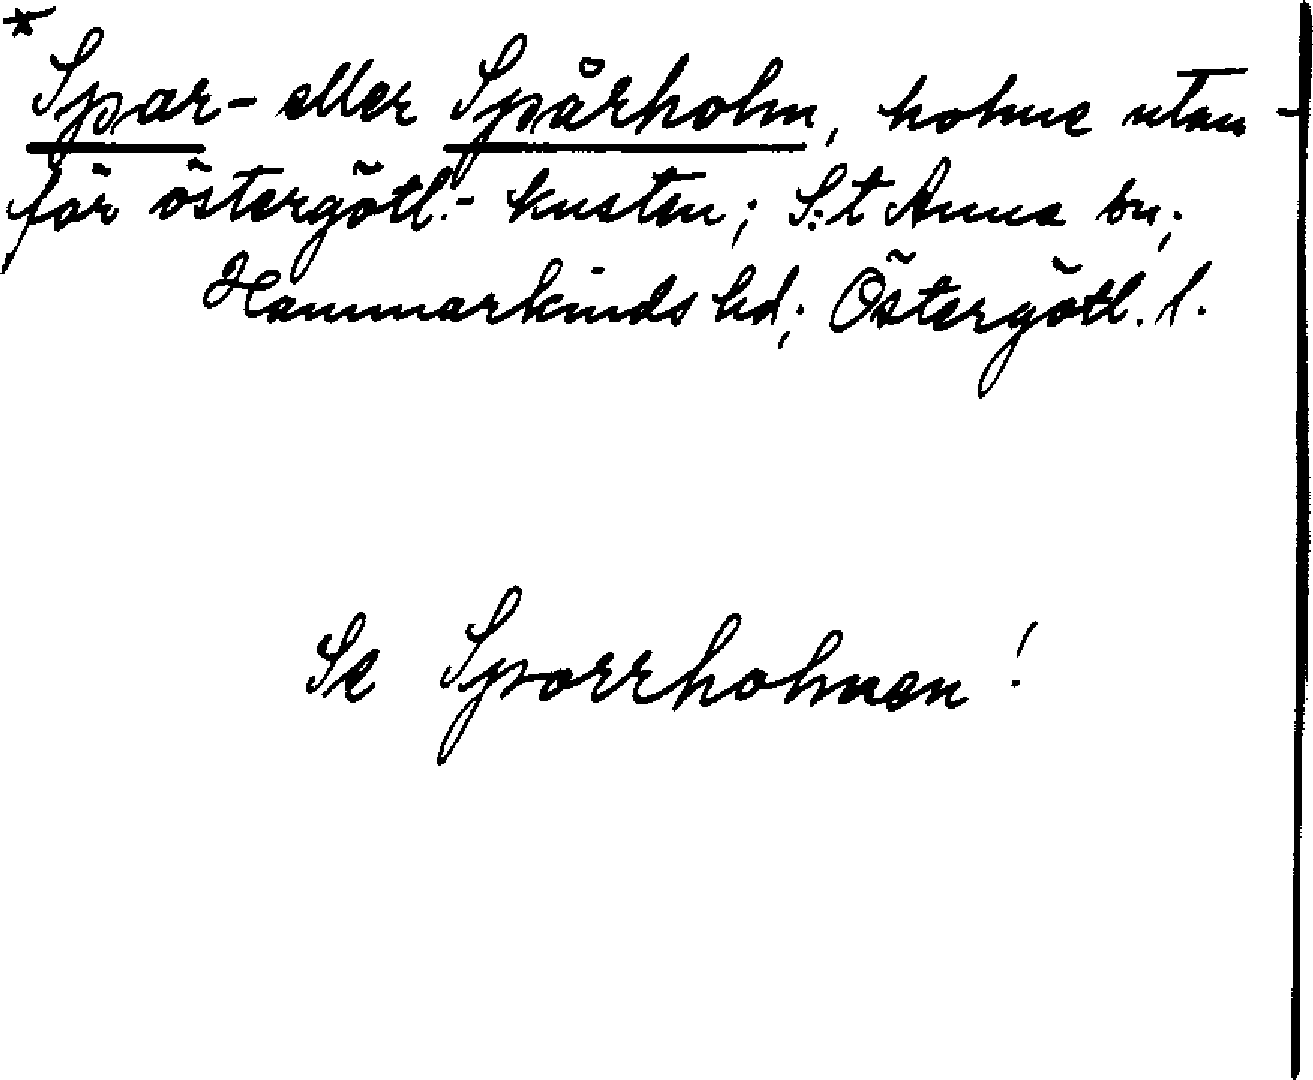 * Spar- eller Spårholm, holme utan-
för östergötl.- kusten; S:t Anna sn;
Hammarkinds hd; Östergötl. l.
Se Sporrholmen!